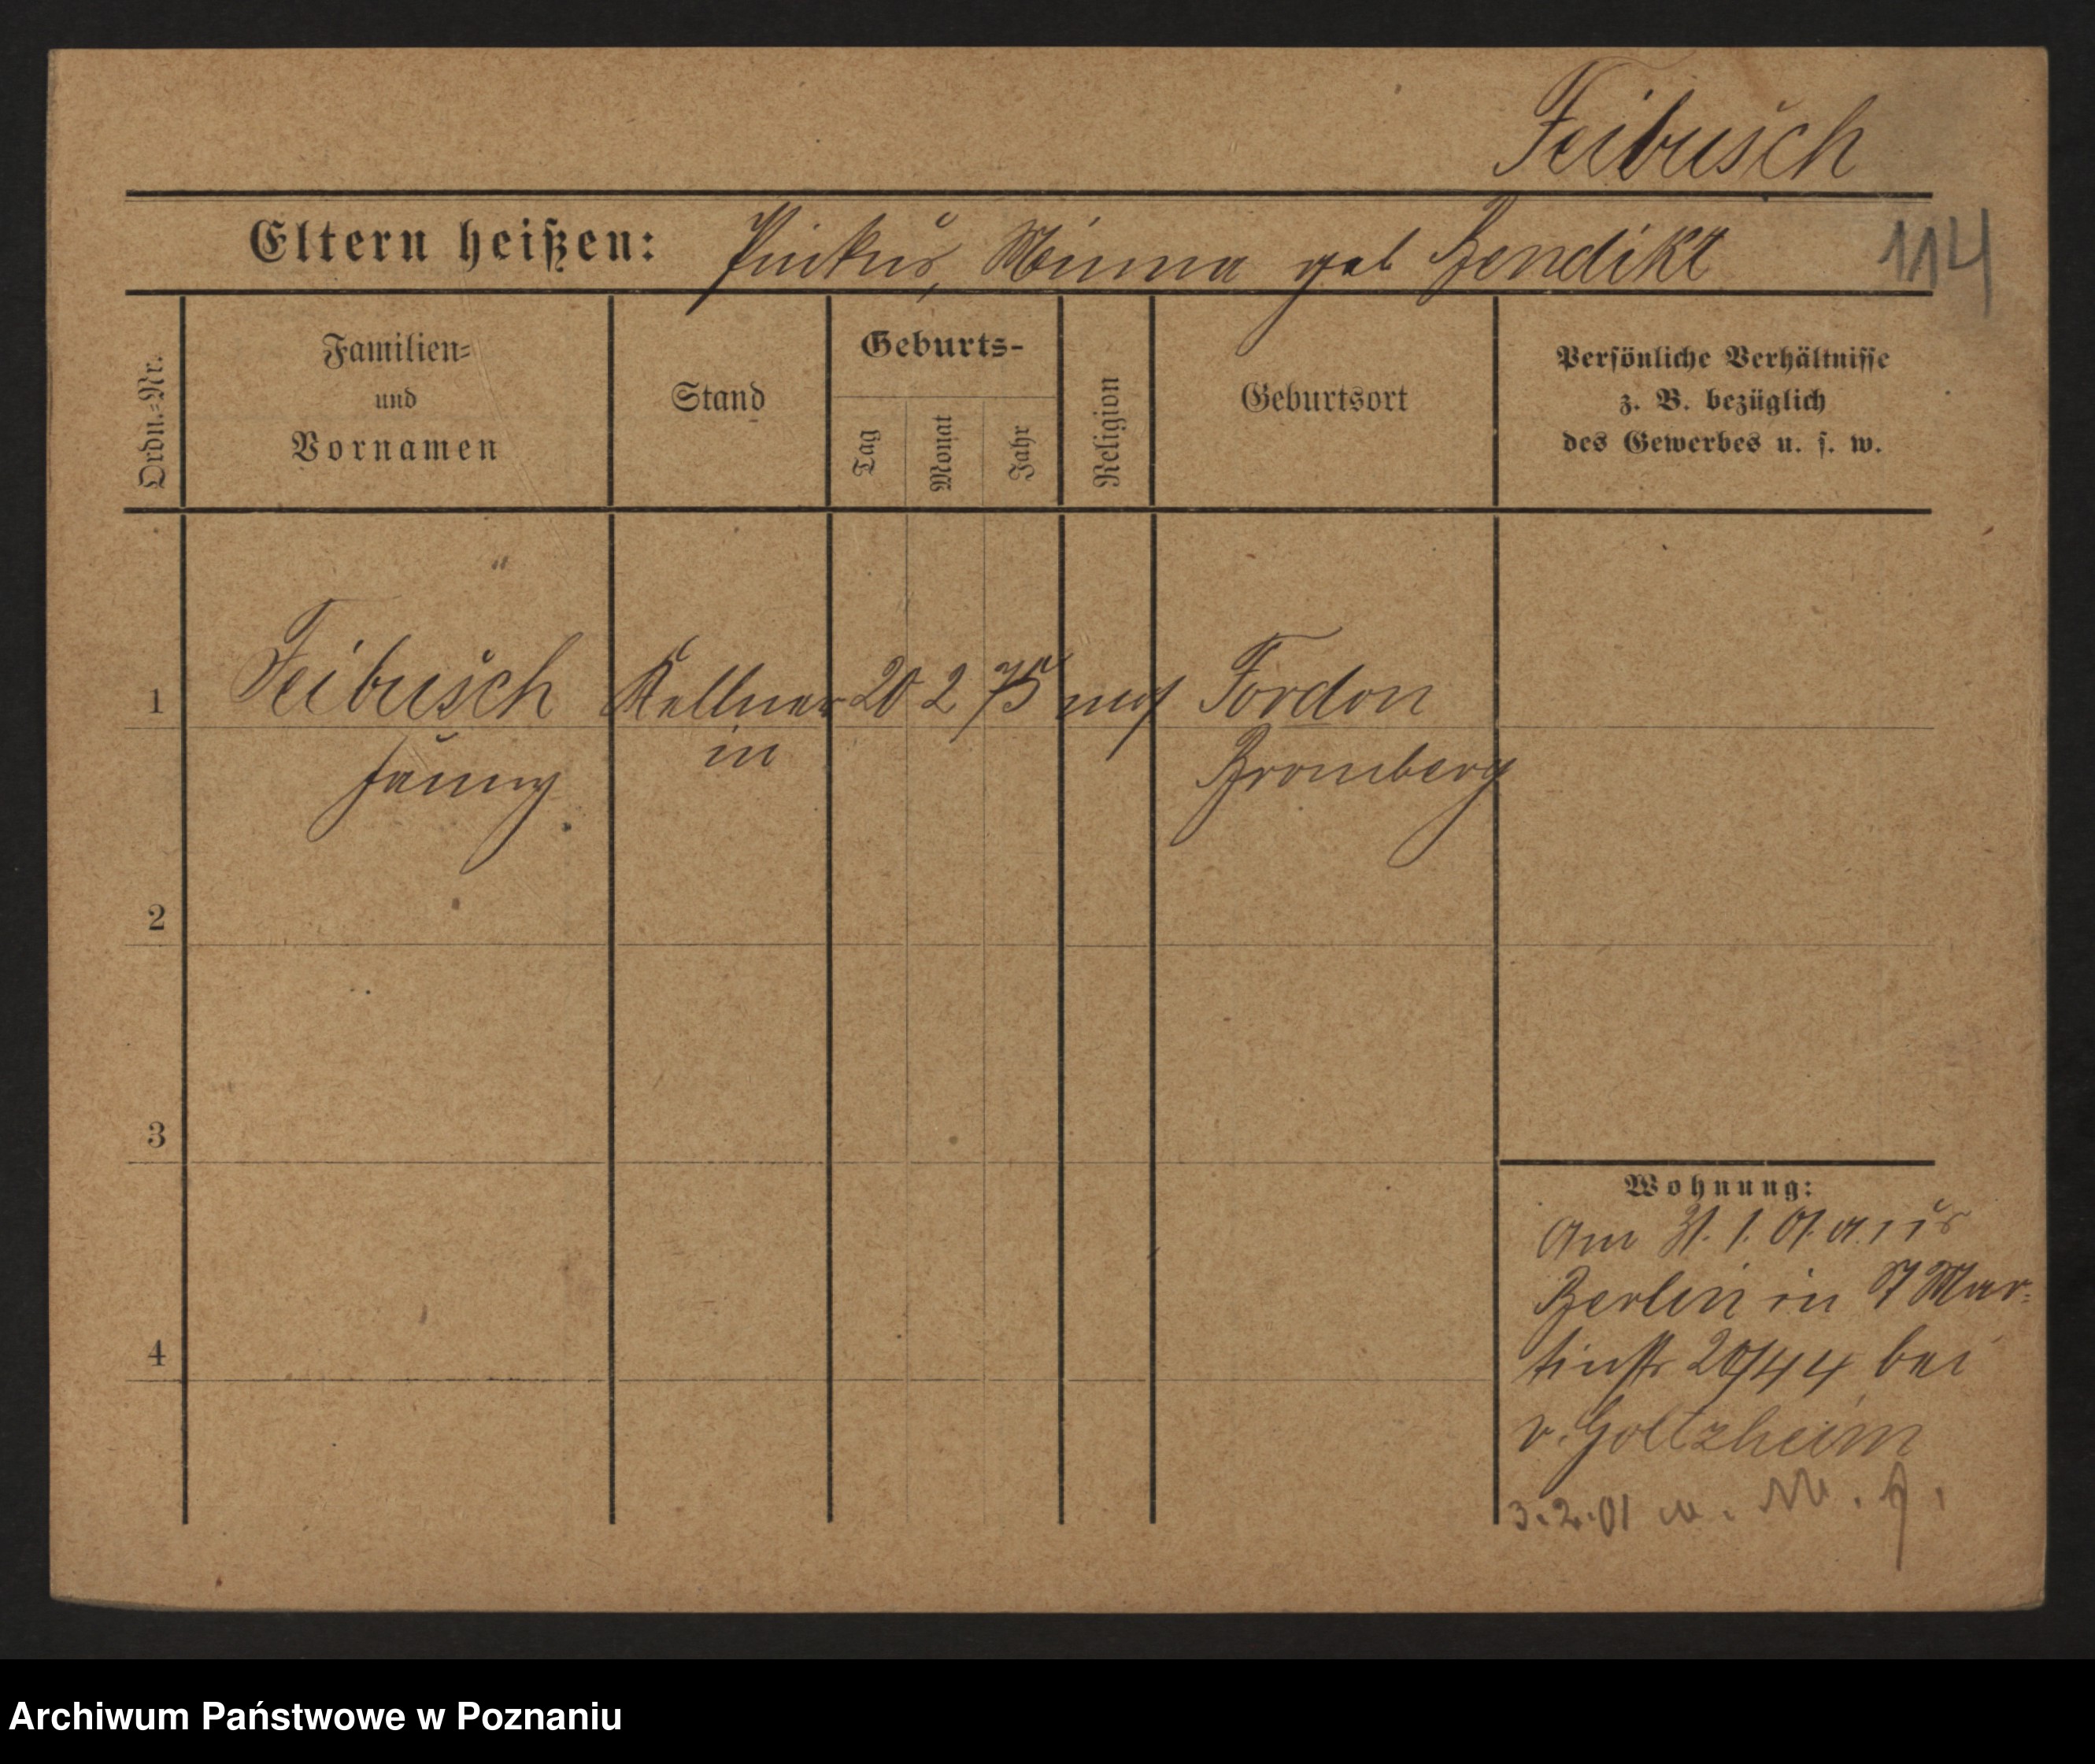 Feibusch
Eltern heißen: Pinkus, Minna geb Bendikt
114
Ordn.=Nr.
Familien=
und
Vornamen
Stand
Geburts-
Tag
Monat
Jahr
Religion
Geburtsort
Persönliche Verhältnisse
z. B. bezüglich
des Gewerbes u. s. w.
1 Feibusch Kellner 20 2 75 mos Fordon
Fanny in Bromberg
2
3
4
Wohnung:
Am 31. 1. 01. aus
Berlin in St Mar-
tinstr 20/44 bei
v. Goltzheim
3.2.01 n.
Archiwum Państwowe w Poznaniu